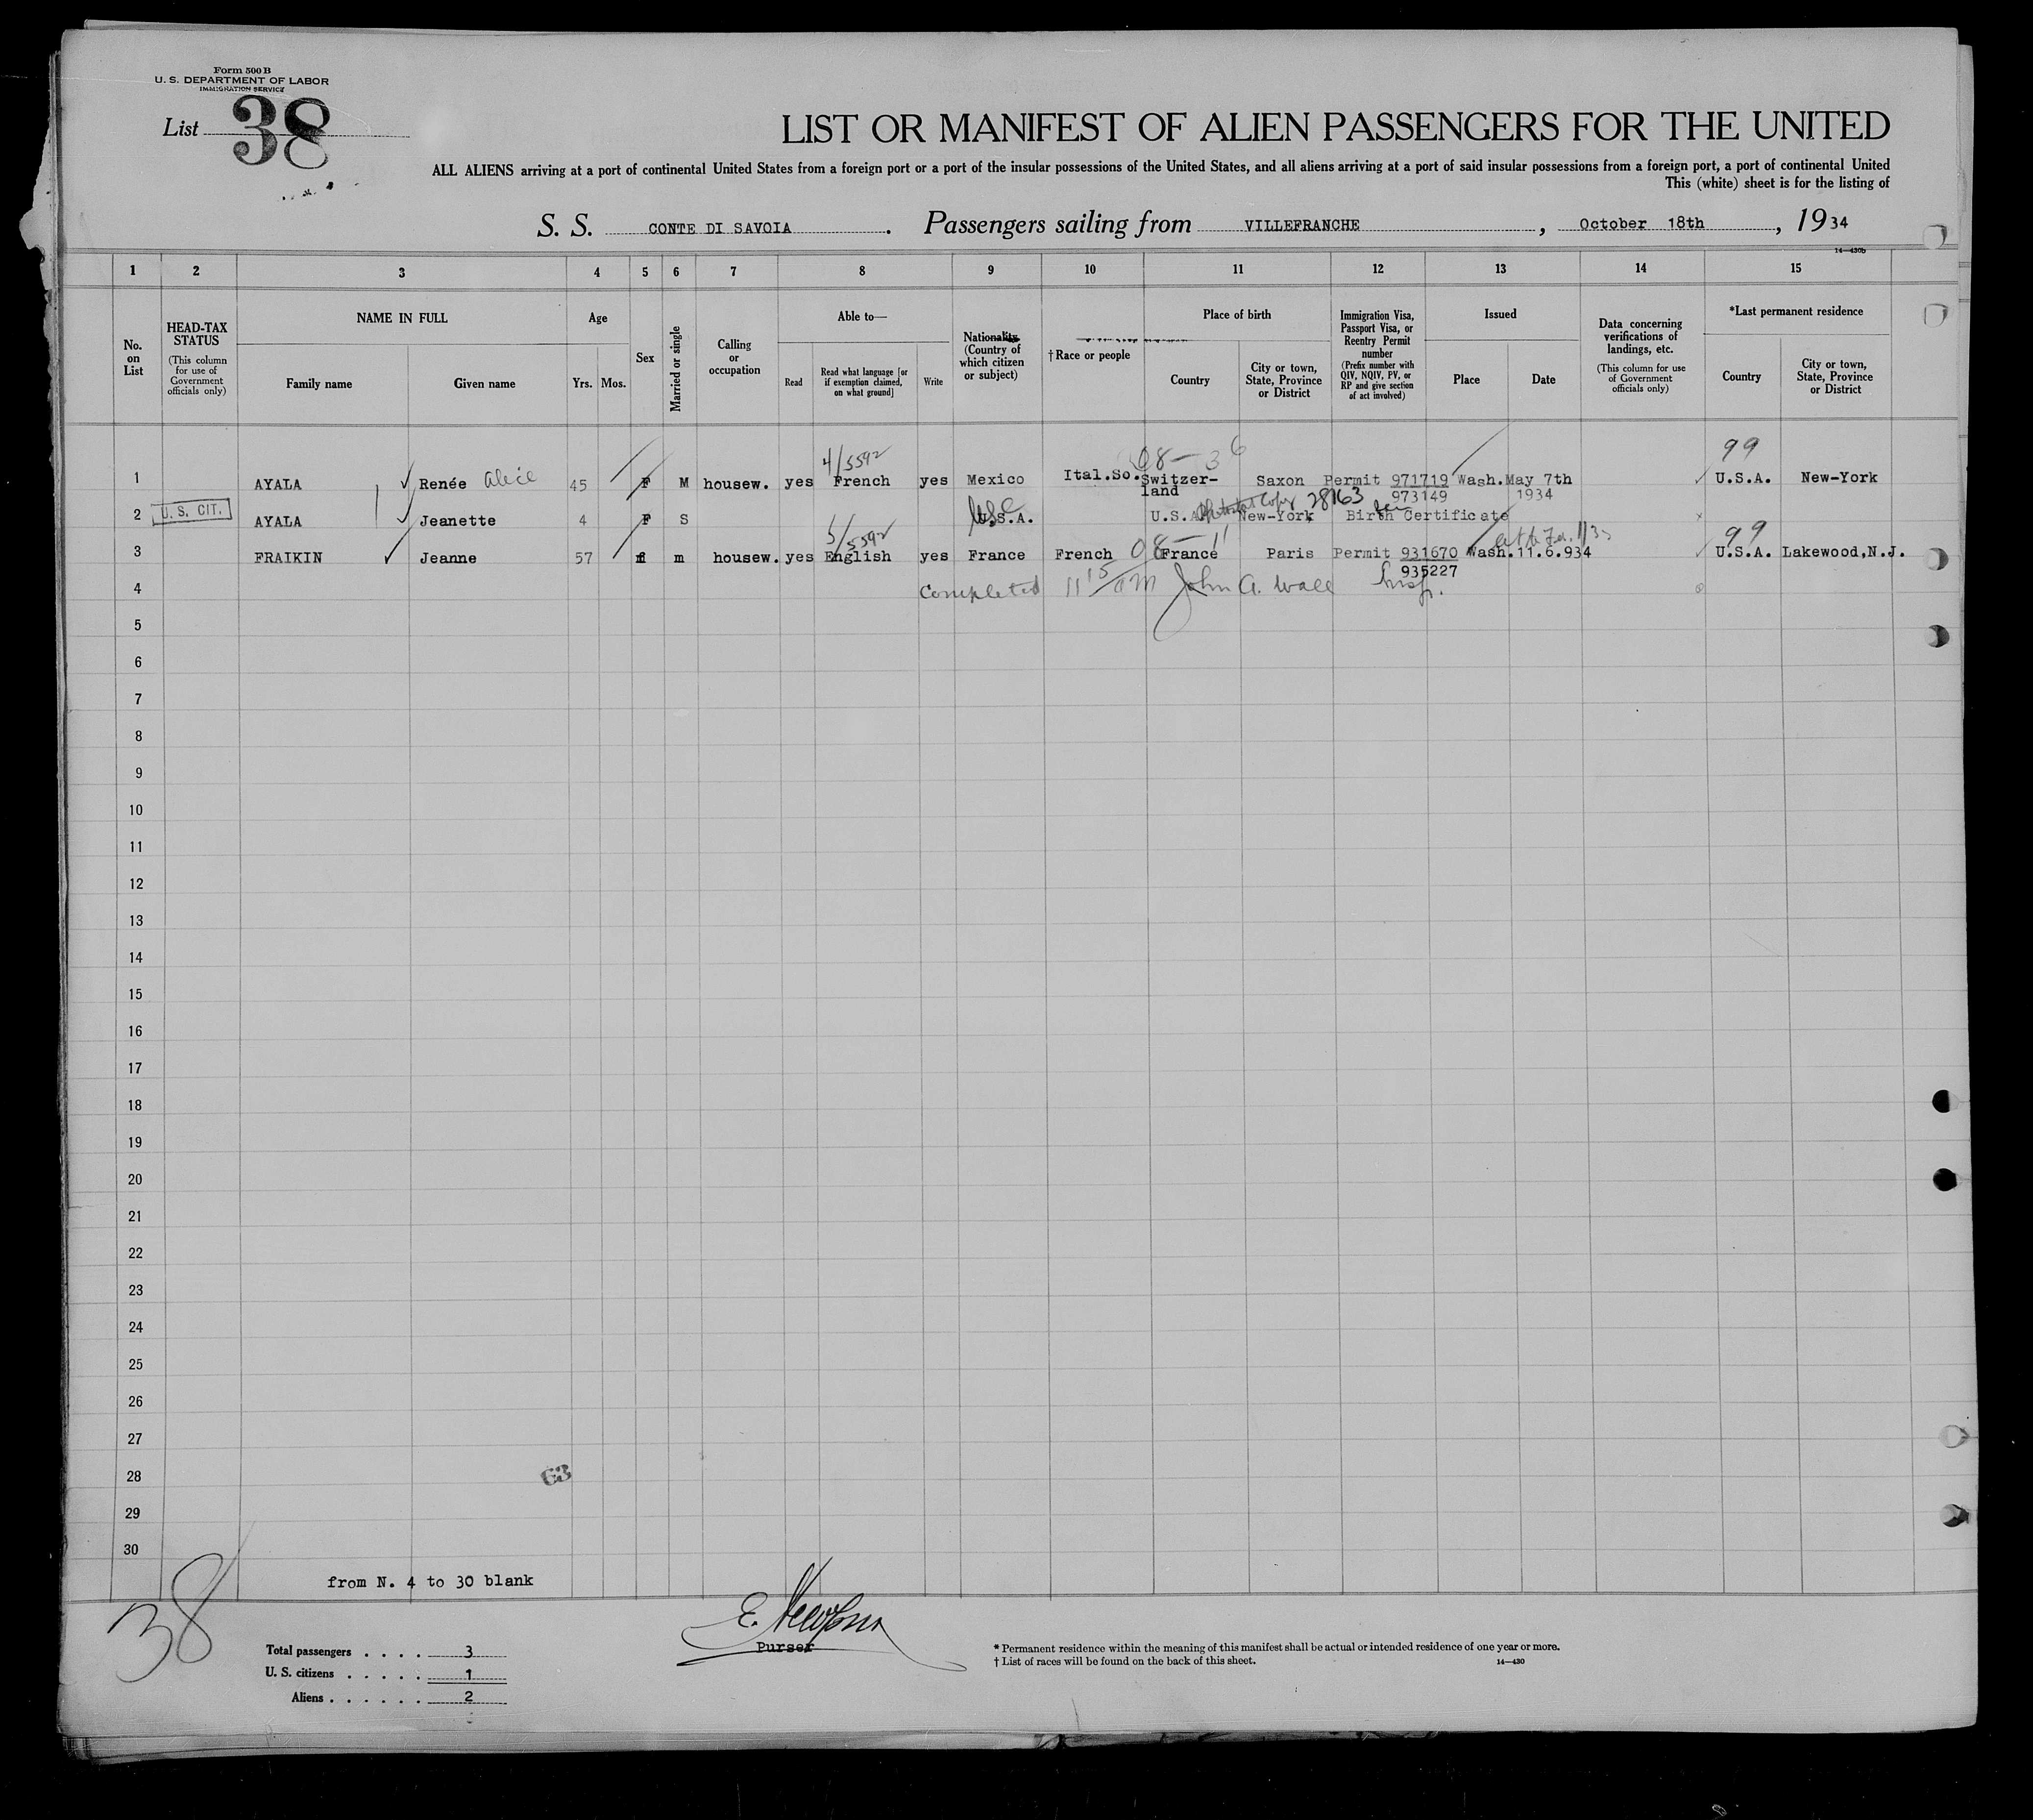 Form 500 B
U. S. DEPARTMENT OF LABOR
IMMIGRATION SERVICE
List 38
LIST OR MANIFEST OF ALIEN PASSENGERS FOR THE UNITED
ALL ALIENS arriving at a port of continental United States from a foreign port or a port of the insular possessions of the United States, and all aliens arriving at a port of said insular possessions from a foreign port, a port of continental United
This (white) sheet is for the listing of
S. S. CONTE DI SAVOIA. Passengers sailing from VILLEFRANCHE, October 18th, 1934
14—430b
1 2 3 4 5 6 7 8 9 10 11 12 13 14 15
No. on List
HEAD-TAX STATUS
(This column for use of Government officials only)
NAME IN FULL
Family name
Given name
Age
Yrs. Mos.
Sex
Married or single
Calling or occupation
Able to—
Read
Read what language [or if exemption claimed, on what ground]
Write
Nationality (Country of which citizen or subject)
†Race or people
Place of birth
Country
City or town, State, Province or District
Immigration Visa, Passport Visa, or Reentry Permit number
(Prefix number with QIV, NQIV, PV, or RP and give section of act involved)
Issued
Place
Date
Data concerning verifications of landings, etc.
(This column for use of Government officials only)
*Last permanent residence
Country
City or town, State, Province or District
4/5592 08—36 99
1 AYALA Renée Alice 45 F M housew. yes French yes Mexico Ital.So. Switzer-land Saxon Permit 971719 Wash. May 7th U.S.A. New-York
973149 1934
2 U. S. CIT. AYALA Jeanette 4 F S U.S.A. U.S.A. New-York Birth Certificate
Photostat Copy 28163
5/5592 08—11 99
3 FRAIKIN Jeanne 57 f m housew. yes English yes France French France Paris Permit 931670 Wash. 11.6.934 U.S.A. Lakewood,N.J.
935227
4 Completed 11 15/AM John A. Wall Insp.
5
6
7
8
9
10
11
12
13
14
15
16
17
18
19
20
21
22
23
24
25
26
27
28 63
29
30
from N. 4 to 30 blank
38
Purser
Total passengers . . . . 3
U. S. citizens . . . . . 1
Aliens . . . . . . 2
* Permanent residence within the meaning of this manifest shall be actual or intended residence of one year or more.
† List of races will be found on the back of this sheet.
14—430